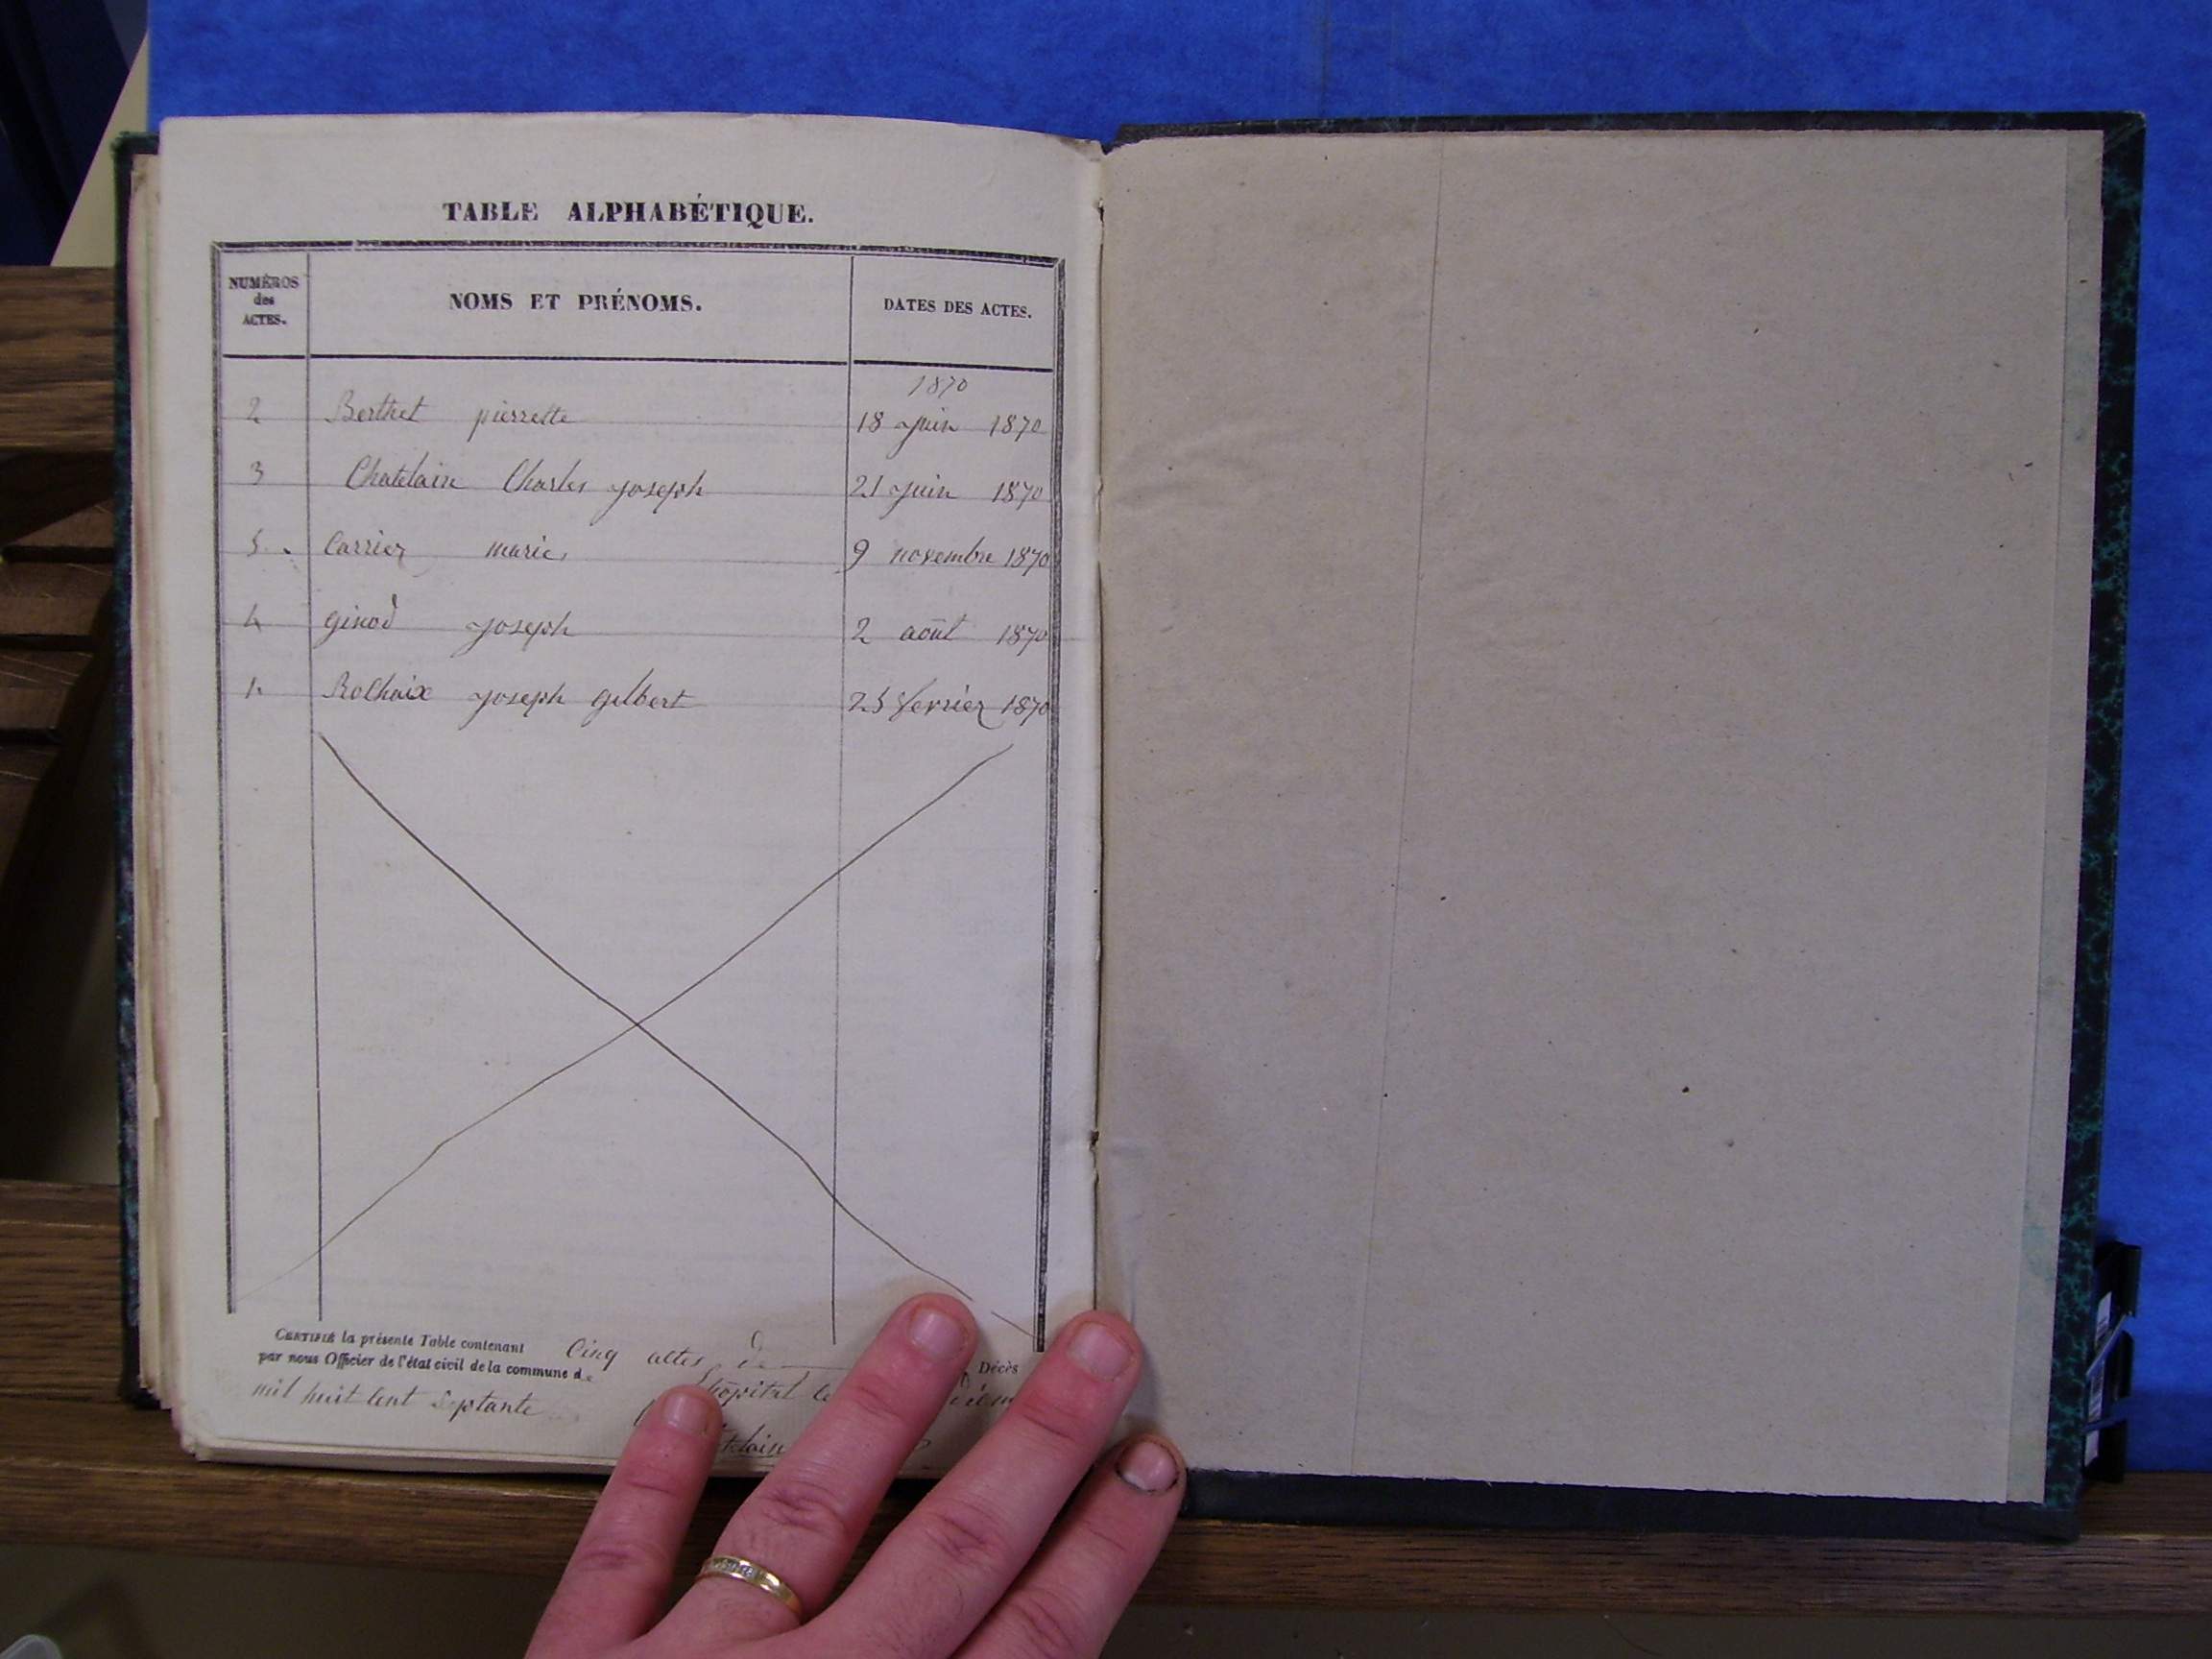 TABLE ALPHABÉTIQUE.
NUMÉROS des ACTES. NOMS ET PRÉNOMS. DATES DES ACTES.
1870
2 Berthet pierrette 18 juin 1870
3 Chatelain Charles joseph 21 juin 1870
5. Carrier marie 9 novembre 1870
4 girod joseph 2 août 1870
1. Rochaix joseph gilbert 25 fevrier 1870
CERTIFIÉ la présente Table contenant Cinq actes de Décès
par nous Officier de l'état civil de la commune de l'hôpital le
mil huit cent septante